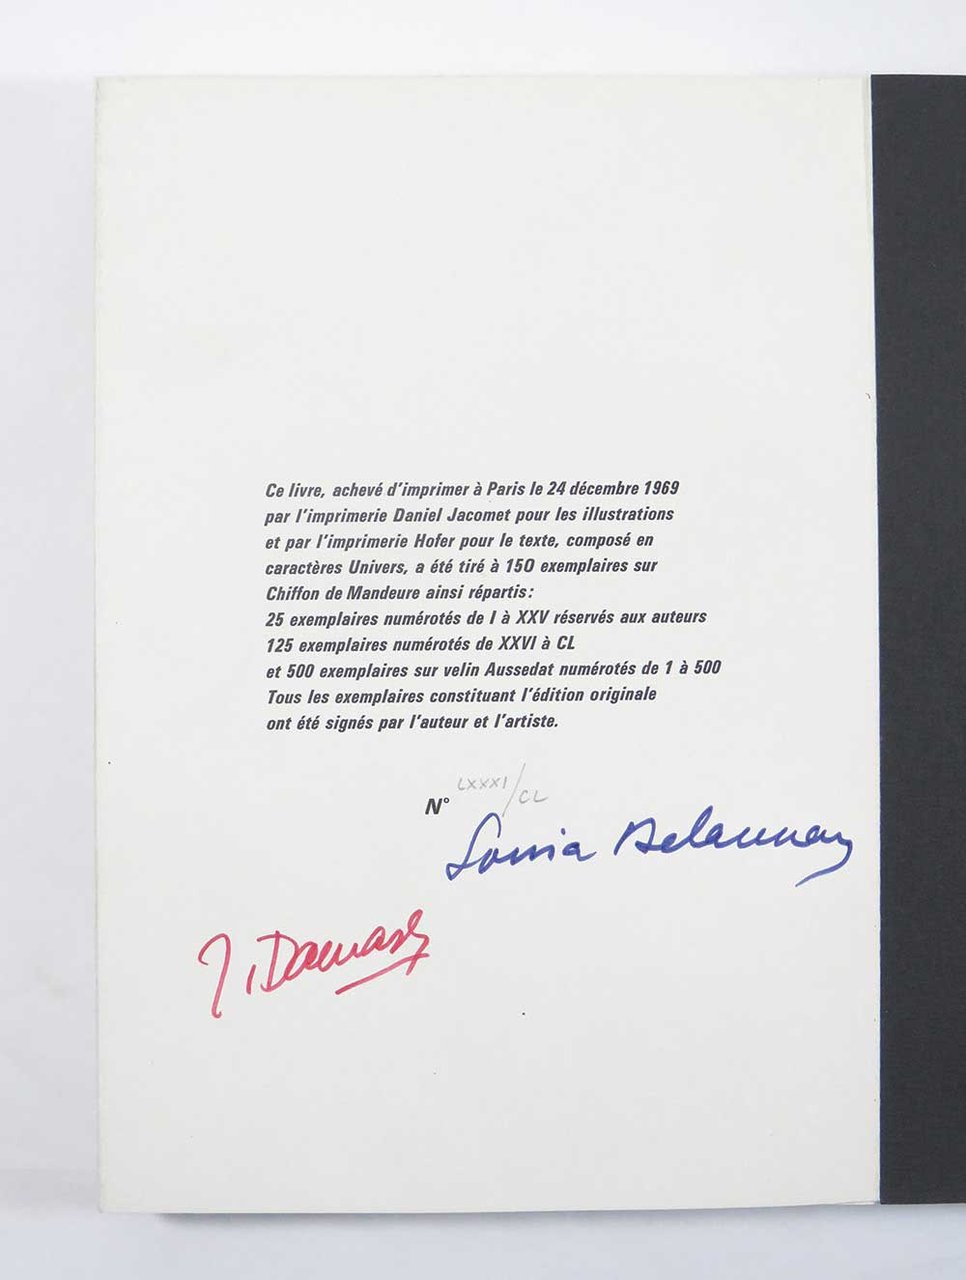 Ce livre, achevé d'imprimer à Paris le 24 décembre 1969
par l'imprimerie Daniel Jacomet pour les illustrations
et par l'imprimerie Hofer pour le texte, composé en
caractères Univers, a été tiré à 150 exemplaires sur
Chiffon de Mandeure ainsi répartis:
25 exemplaires numérotés de I à XXV réservés aux auteurs
125 exemplaires numérotés de XXVI à CL
et 500 exemplaires sur velin Aussedat numérotés de 1 à 500
Tous les exemplaires constituant l'édition originale
ont été signés par l'auteur et l'artiste.
N° LXXXI/CL
Sonia Delaunay
J. Damase